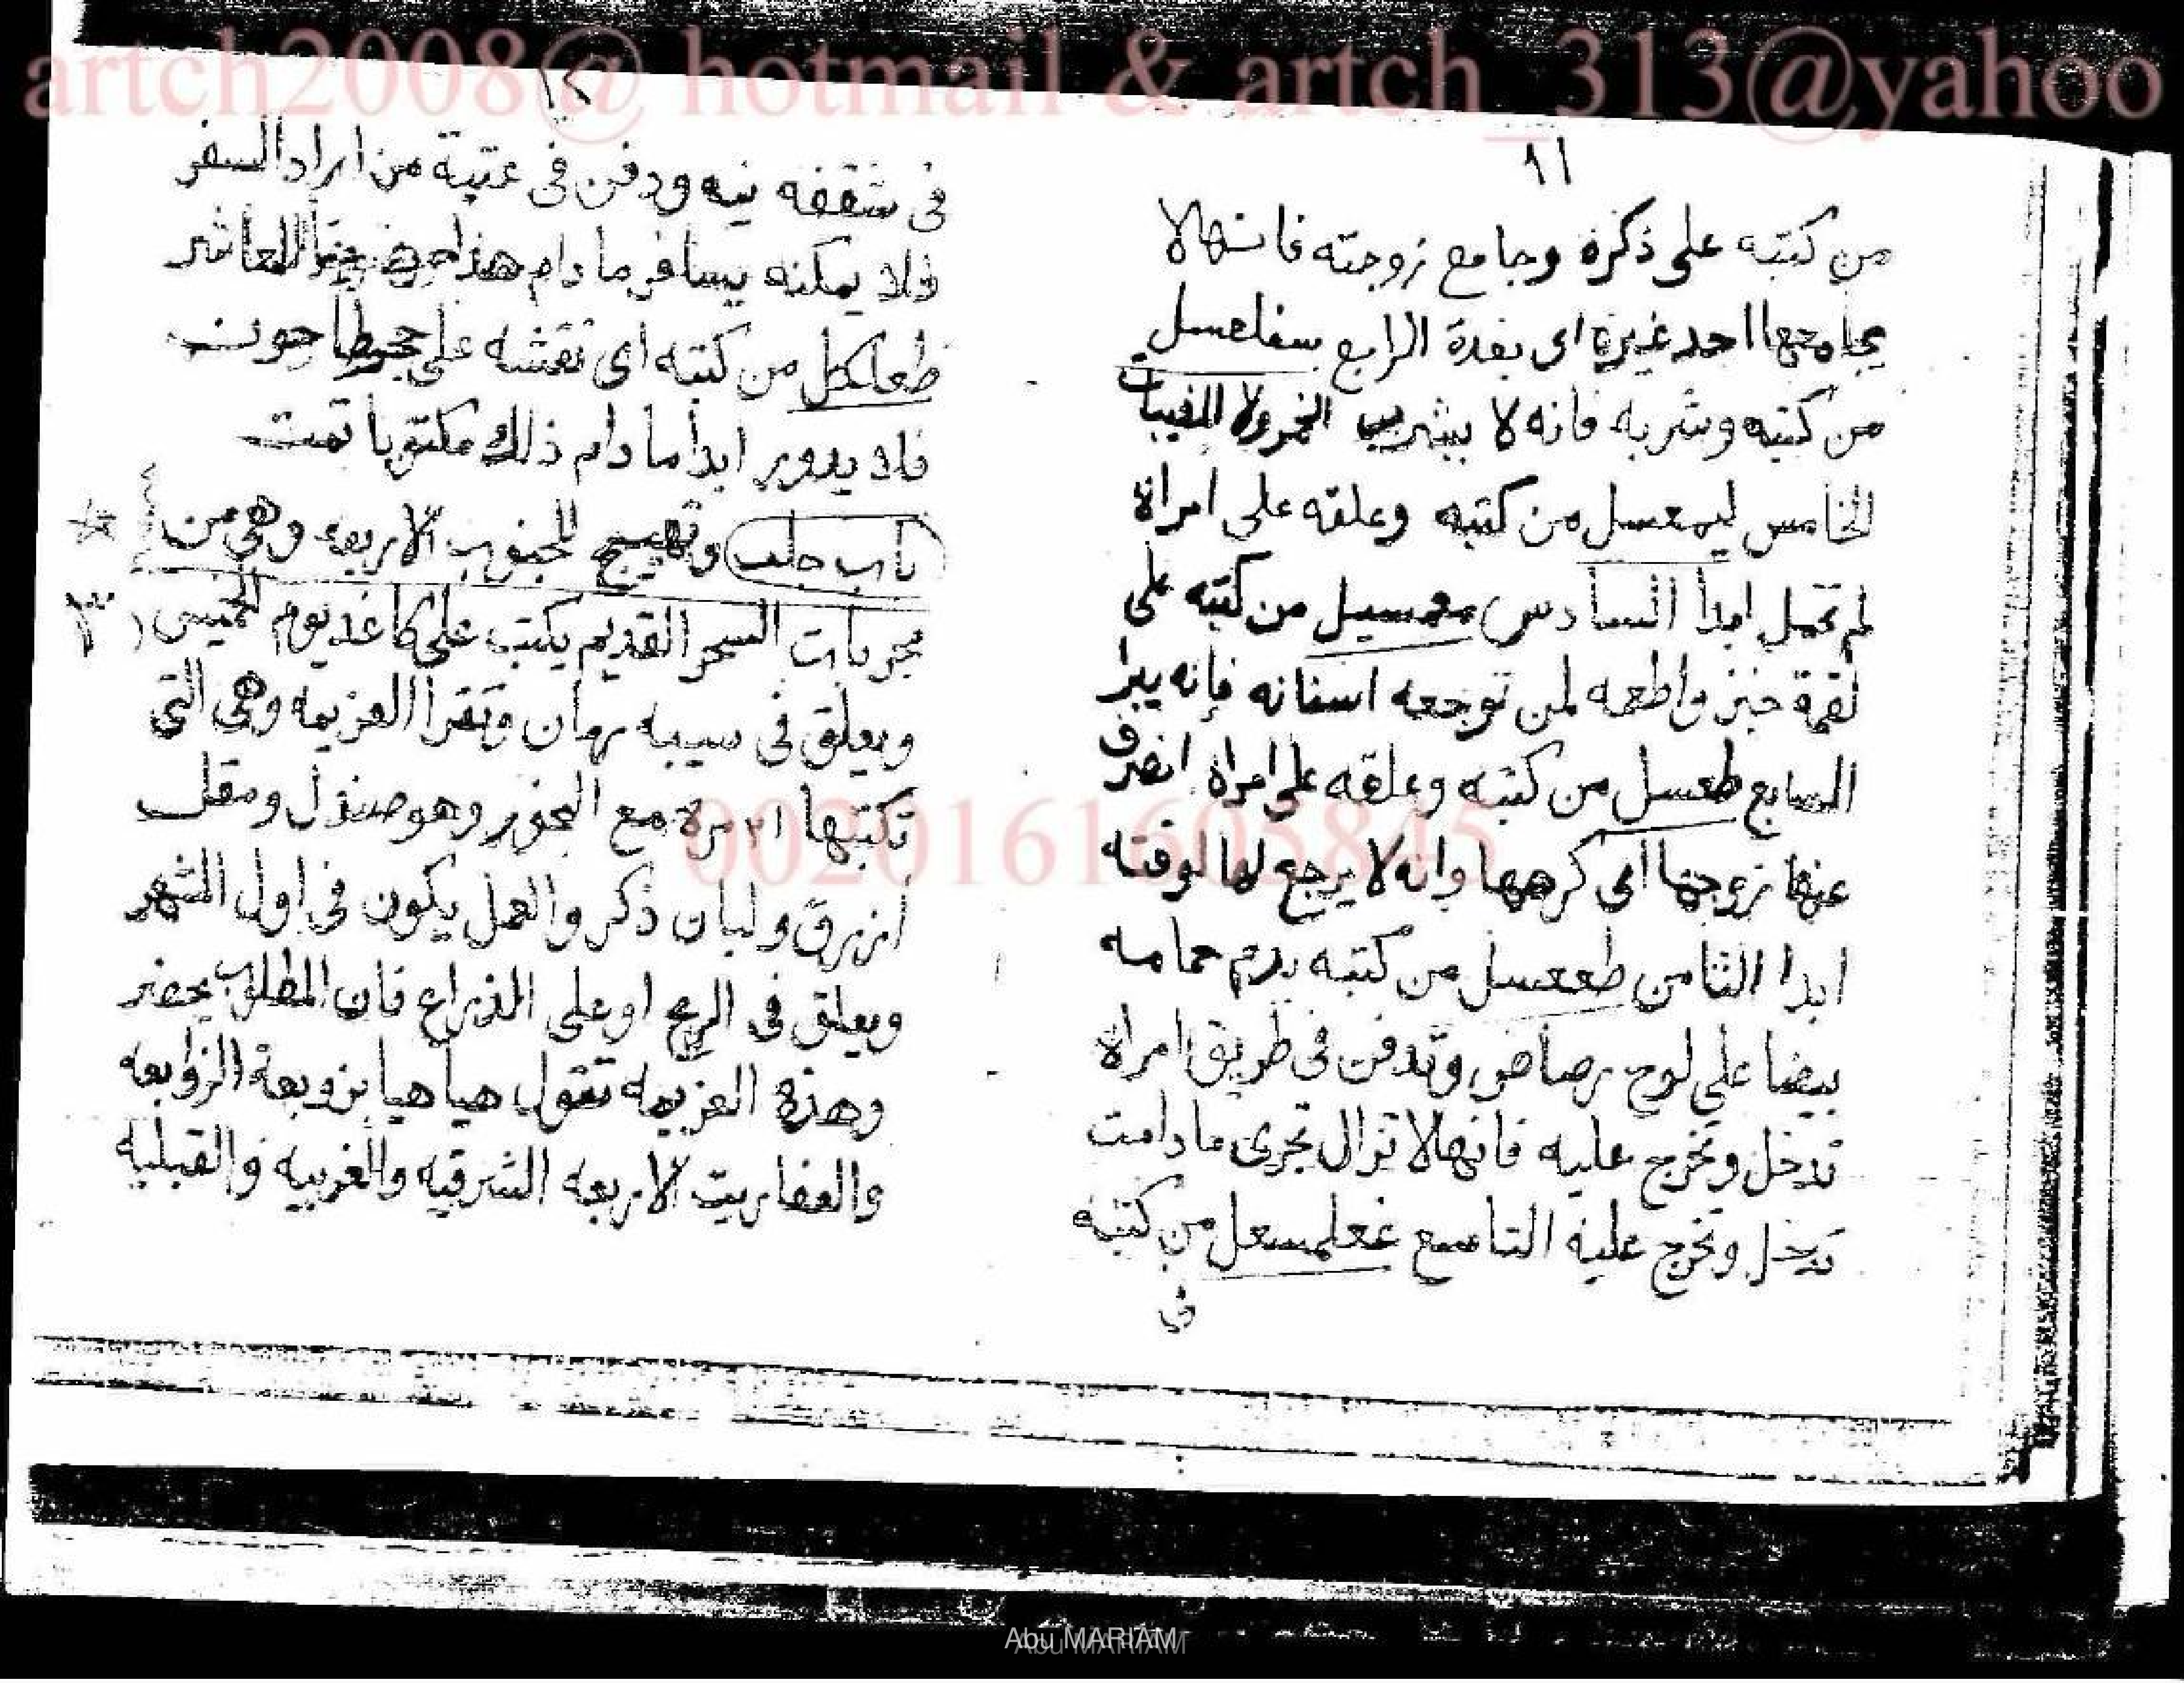 artch2008@ hotmail & artch_313@yahoo
١١
من كتبه على ذكره وجامع زوجته فانها لا
يجامعها احد غيره اى بعدة الرابع سفلعسل
من كتبه وشربه فانه لا يشرب الخمر ولا المغيبات
الخامس ليمعسل من كتبه وعلقه على امراة
لم تحمل ابدا السادس معمسيل من كتبه على
لقمة خبز واطعمه لمن توجعه اسنانه فإنه يبرا
السابع طعسل من كتبه وعلقه على امراة انصرف
عنها زوجها اى كرهها وانه لا يرجع لها لوقته
ابدا الثامن طععسل من كتبه بدم حمامه
بيضا على لوح رصاص وتدفن فى طريق امراة
تدخل وتخرج عليه فانها لا تزال تجرى ما دامت
تدخل وتخرج عليه التاسع غعلمسعل من كتبه
فى
١٢
فى شقفه نيه ودفن فى عتبة من اراد السفر
فلا يمكنه يسافر ما دام هذا العاشر
طعاكل من كتبه اى نقشه على حجر طاحون
فلا يدور ابدا ما دام ذلك مكتوبا تمت
باب جلب وتهييج للجنوب الاربعه وهى من
مجربات السحر القديم يكتب على كاغد يوم الخميس
ويعلق فى سيبه رمان وتقرا العزيمه وهى التى
تكتبها ٢١ مرة مع البخور وهو صندل ومقل
أزرق ولبان ذكر والعمل يكون فى اول الشهر
ويعلق فى الريح او على الذراع فان المطلوب يحضر
وهذه العزيمه تقول هيا هيا بزوبعة الزوابعه
والعفاريت الاربعه الشرقيه والغربيه والقبليه
0020161605845
Abu MARIAM